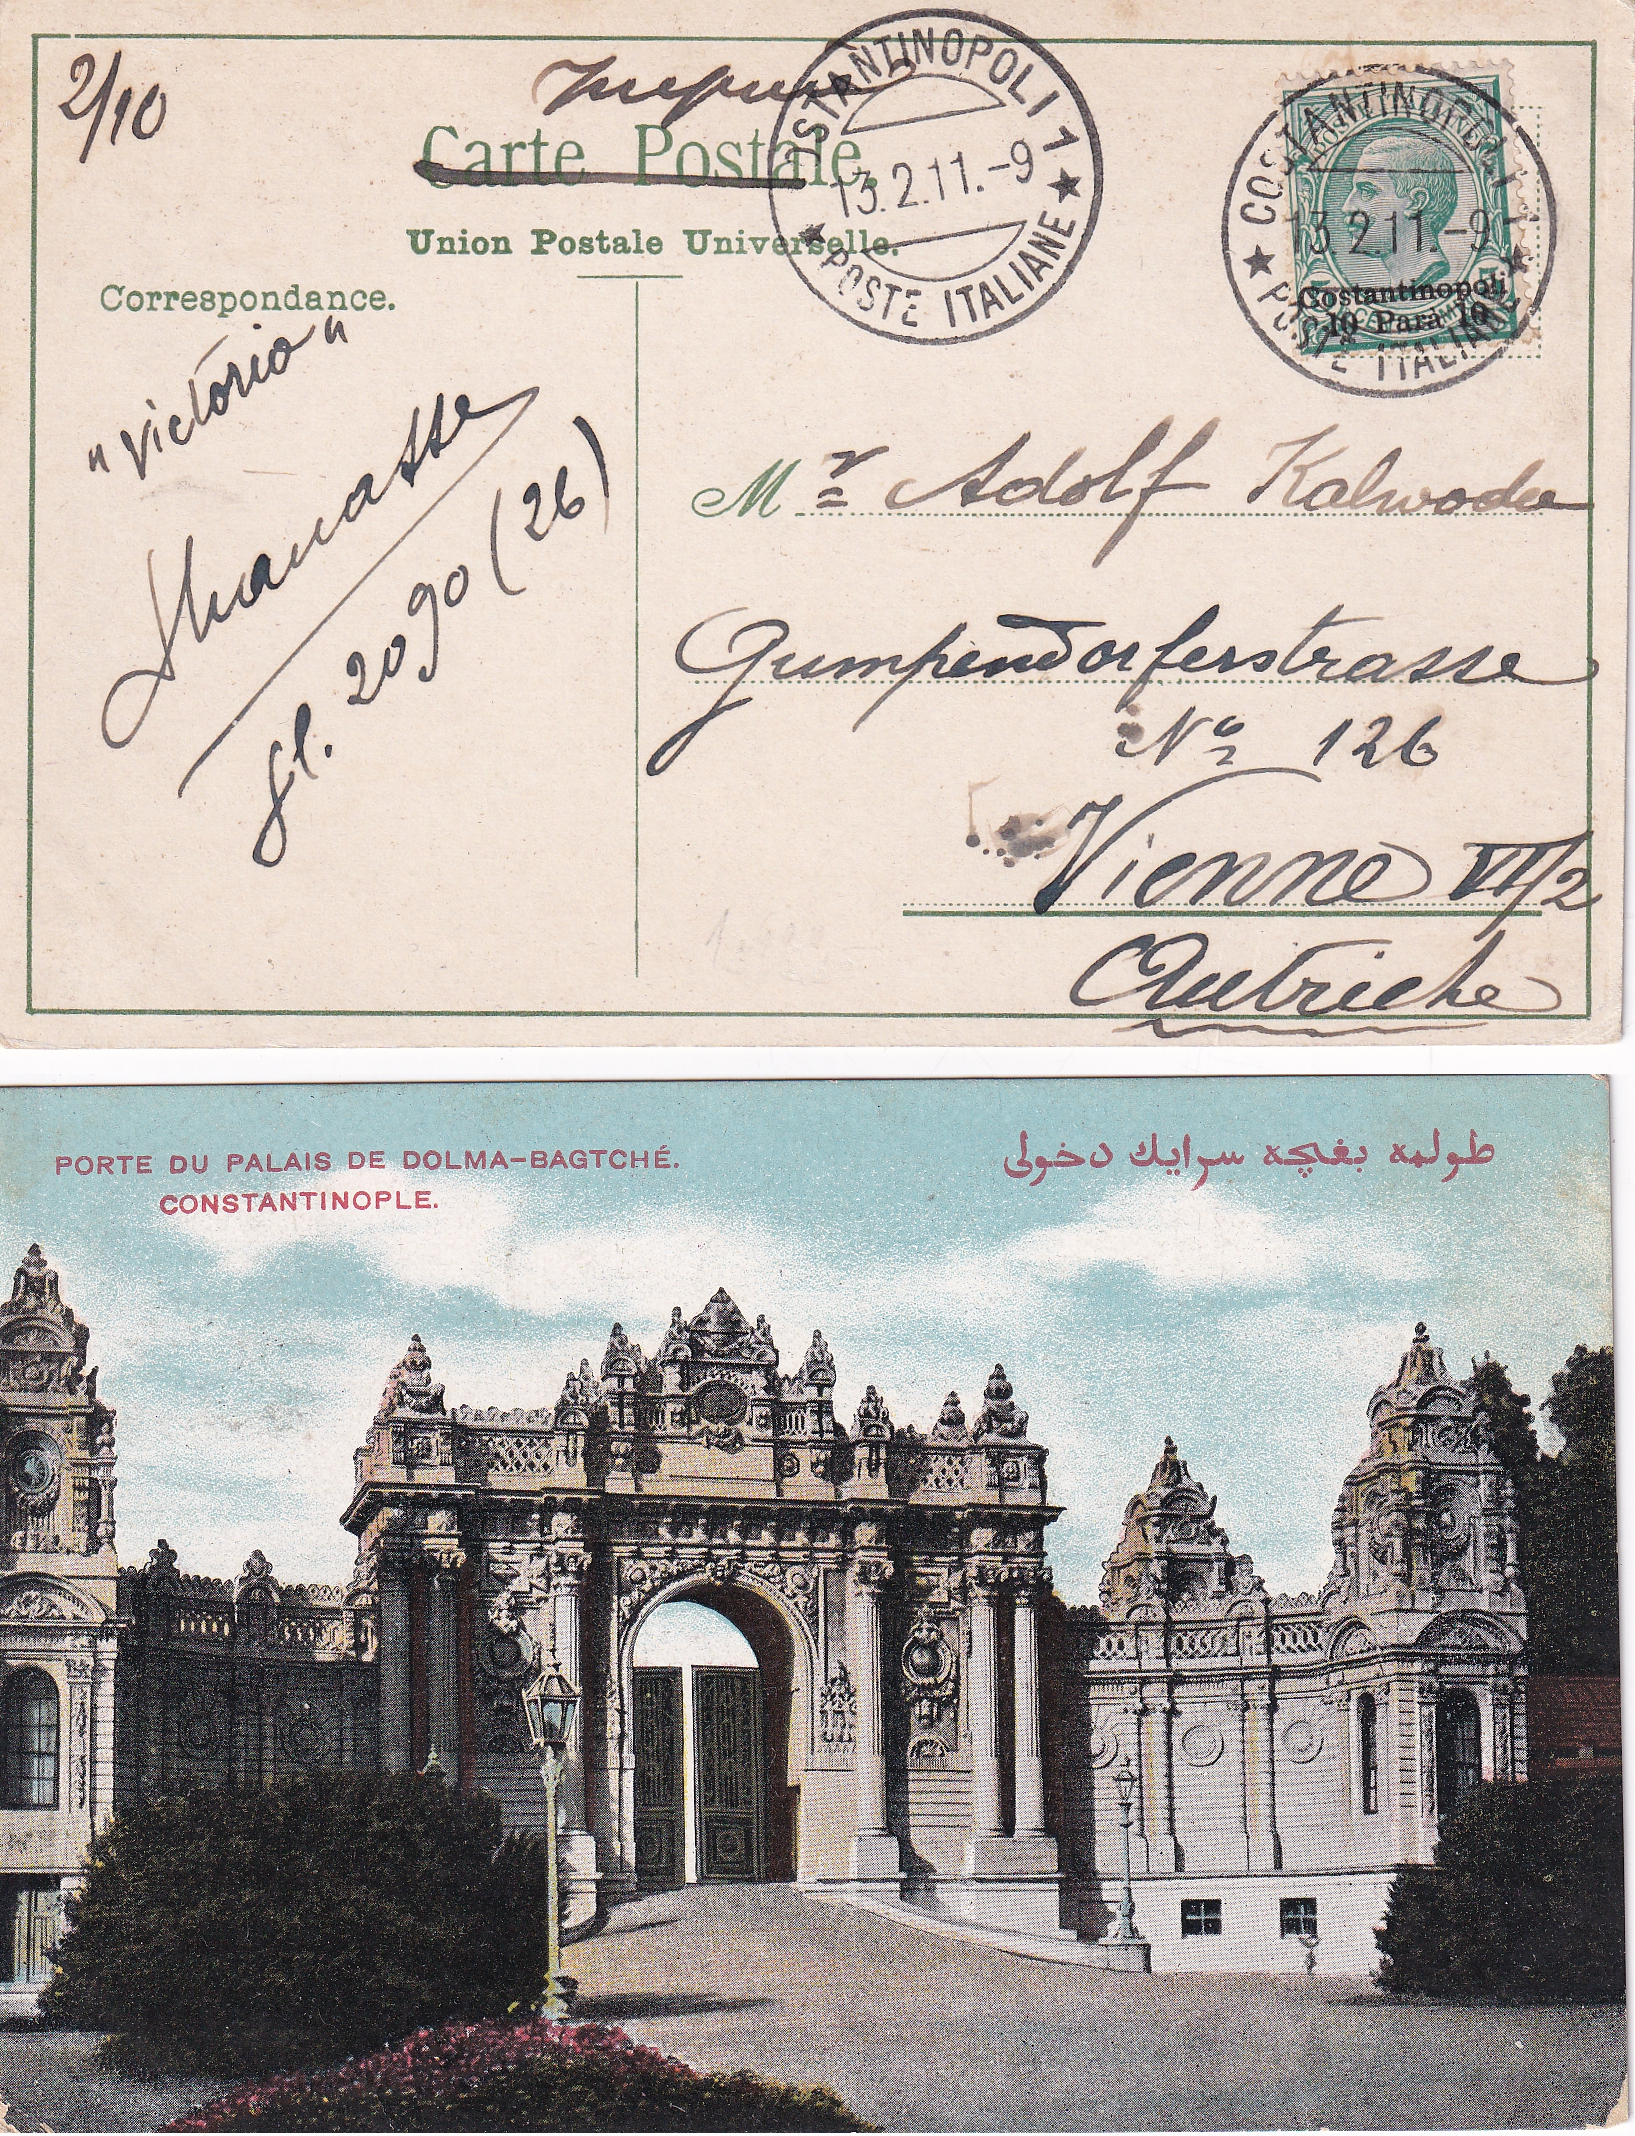 2/10
Carte Postale.
Union Postale Universelle.
Correspondance.
COSTANTINOPOLI 1
13.2.11.-9
POSTE ITALIANE
COSTANTINOPOLI 1
13.2.11.-9
POSTE ITALIANE
Costantinopoli
10 Parà 10
"Victoria"
gl. 2090 (26)
Mr Adolf Kalwoda
Gumpendorferstrasse
No 126
Vienne VI/2
Autriche
PORTE DU PALAIS DE DOLMA-BAGTCHÉ.
CONSTANTINOPLE.
طولمه بغچه سرايك دخولى